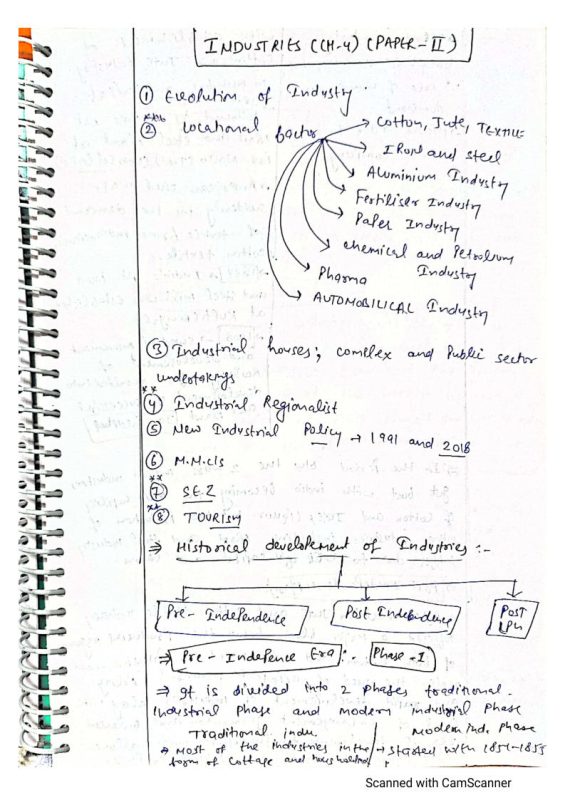 INDUSTRIES (CH-4) (PAPER-II)
① Evolution of Industry
② Locational factor → Cotton, Jute, TEXTILE
→ IRON and steel
→ Aluminium Industry
→ Fertiliser Industry
→ Paper Industry
→ chemical and Petroleum Industry
→ Pharma
→ AUTOMOBILICAL Industry
③ Industrial houses; complex and Public sector
undertakings
④ Industrial Regionalist
⑤ New Industrial Policy → 1991 and 2018
⑥ M.M.cls
⑦ SEZ
⑧ TOURISM
⇒ Historical developement of Industries :-
Pre-Independence Post Independence POST LPG
⇒ Pre-Indepence Era :- Phase-I
⇒ It is divided into 2 phases traditional
industrial phase and modern industrial phase
Traditional indu. Modern ind. Phase
→ Most of the industries in the → started with 1854-1855
form of Cottage and households
Scanned with CamScanner